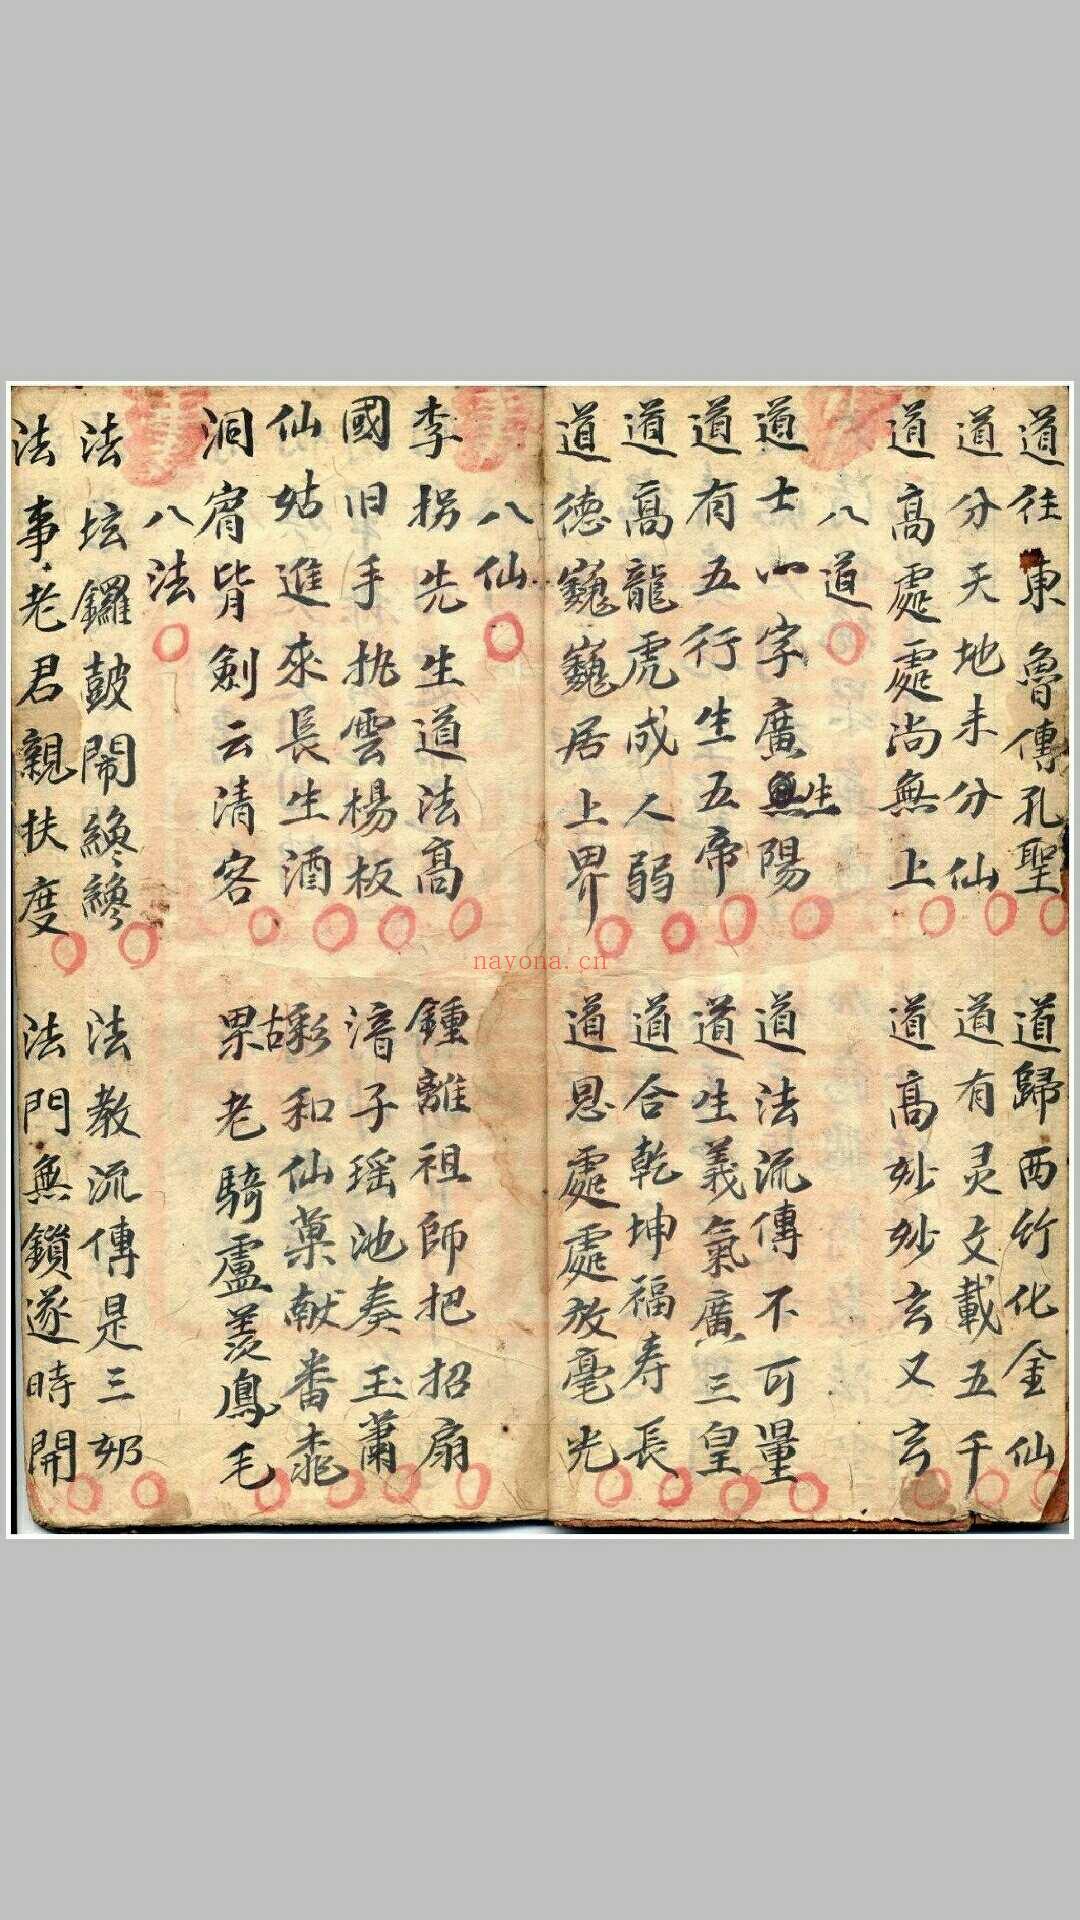 道往東魯傳孔聖
道歸西竹化金仙
道分天地未分仙
道有灵文載五千
道高處處尚無上
道高妙妙玄又玄
八道
道士心字廣無生陽
道法流傳不可量
道有五行生五帝
道生義氣廣三皇
道高龍虎成人弱
道合乾坤福寿長
道德巍巍居上界
道恩處處放毫光
八仙
李拐先生道法高
鍾離祖師把招扇
國旧手執雲楊板
湆子瑶池奏玉蕭
仙姑進來長生酒
彩和仙菓献番桃
洞宵背劍云清客
果老騎盧羡鳳毛
八法
法坛鑼鼓鬧
法教流傳是三
法事老君親扶度
法門無鎖遂時開
nayona.cn